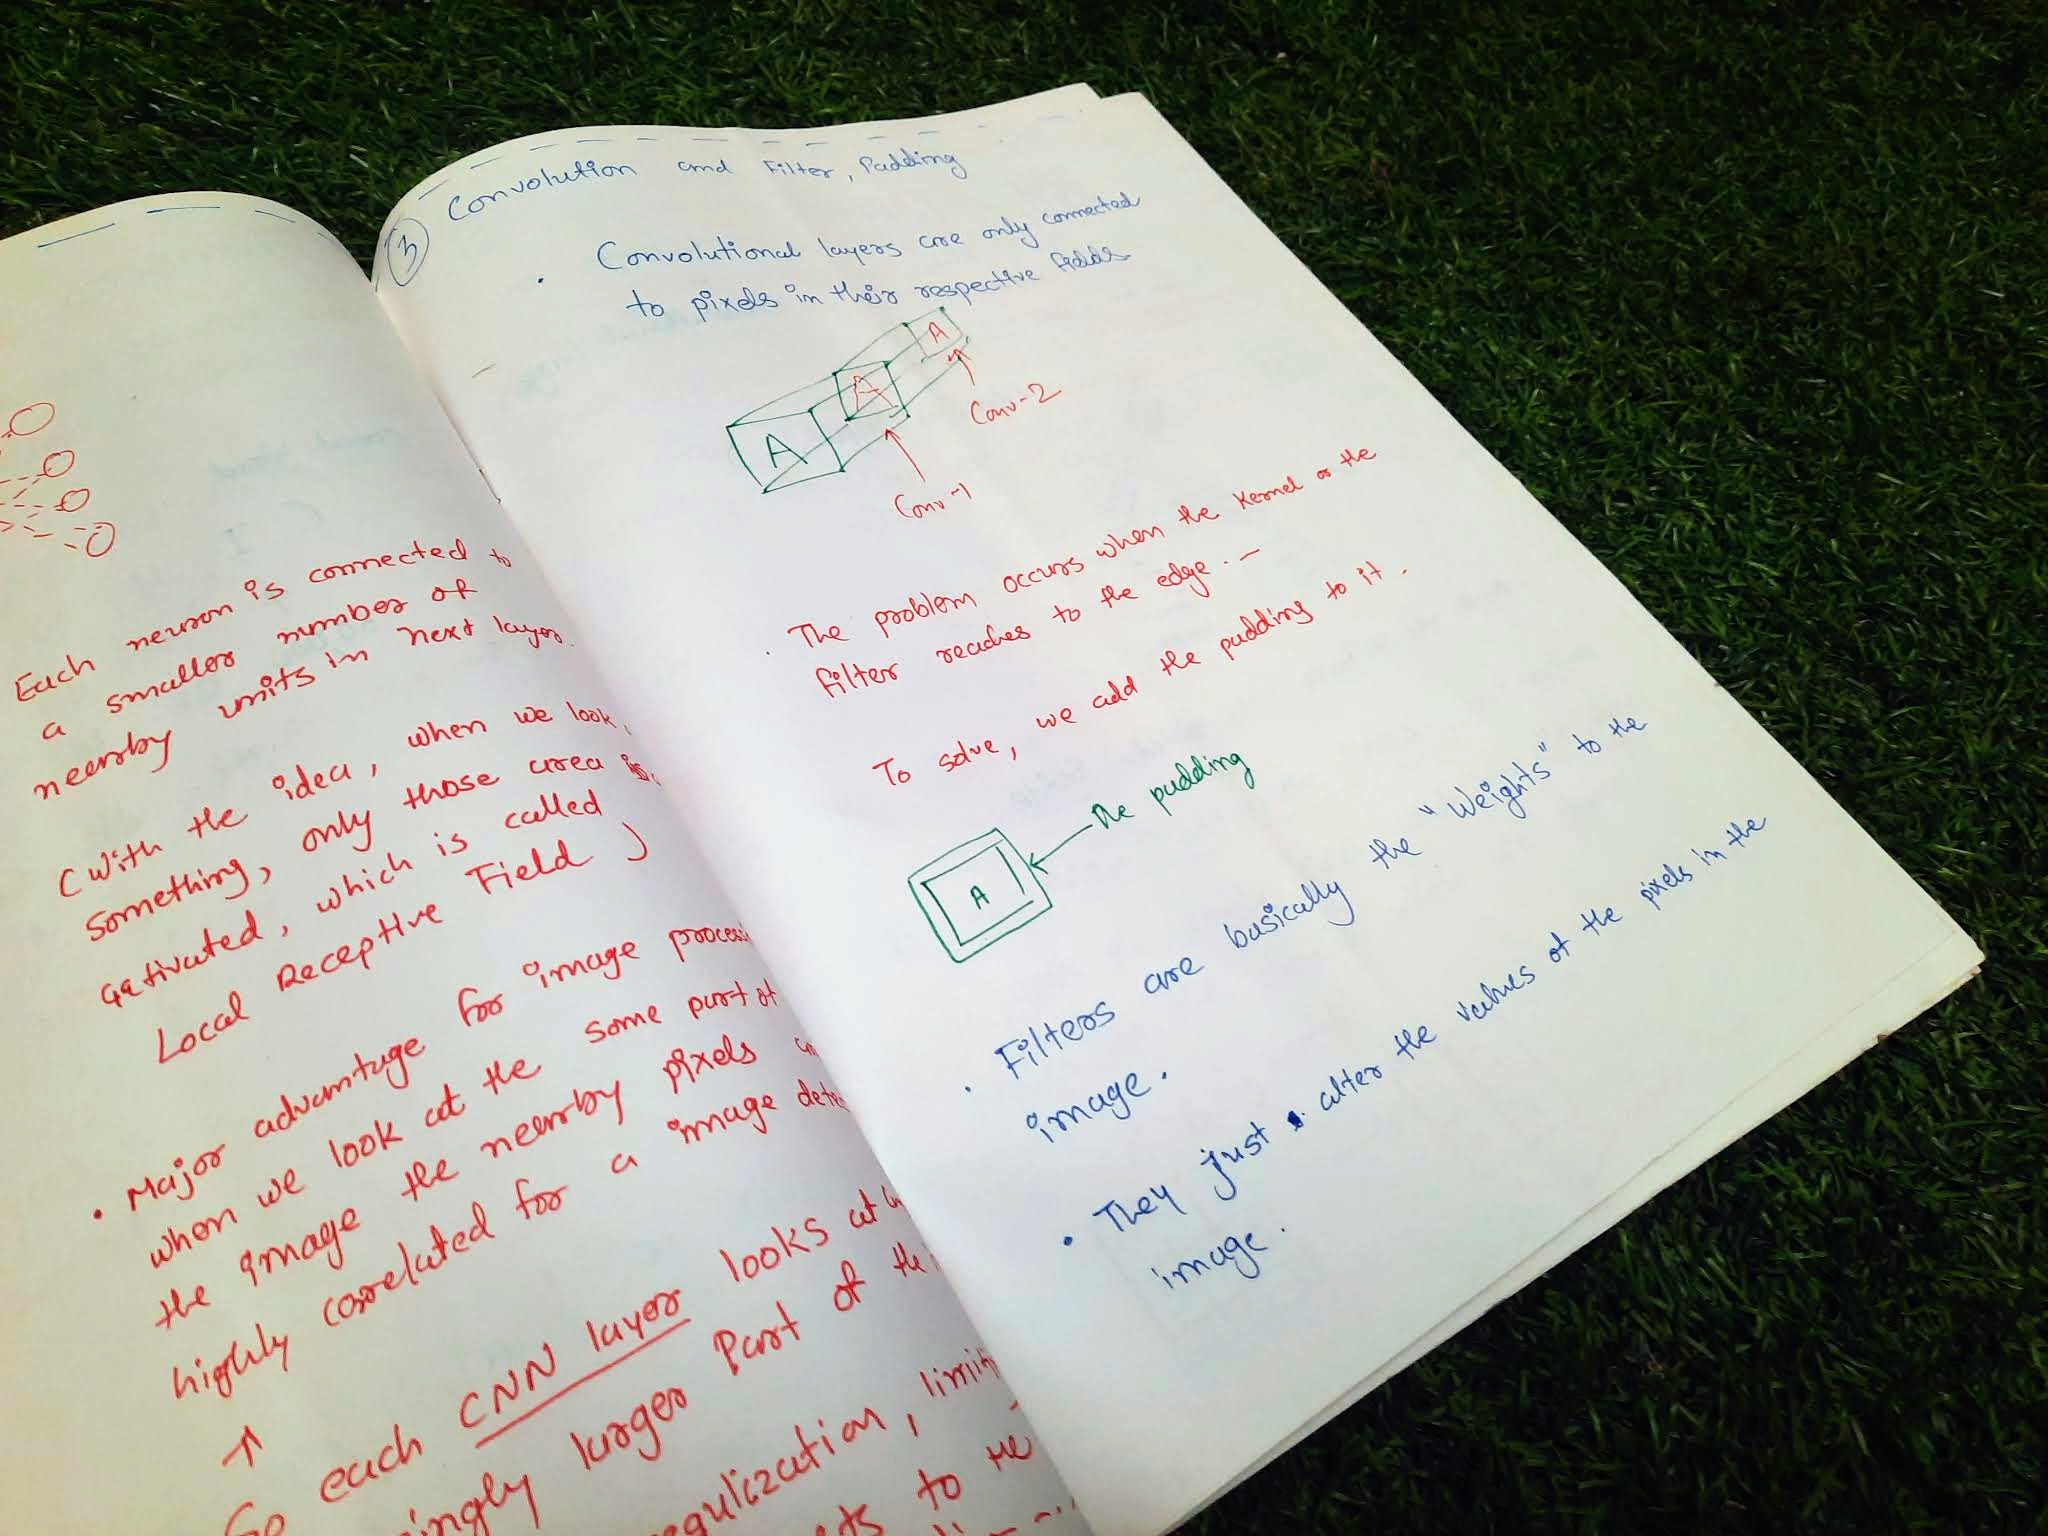 Each neuron is connected to
a smaller number of
nearby units in next layer.
(With the idea, when we look
something, only those area is
activated, which is called
Local Receptive Field)
• Major advantage for image
when we look at the some part of
the image the nearby pixels
highly correlated for a image
↑
So each CNN layer looks at
larger part of the
to the
3 Convolution and Filter, Padding
• Convolutional layers are only connected
to pixels in their respective fields
A
A
A
Conv-2
Conv-1
• The problem occurs when the Kernel or the
filter reaches to the edge. —
To solve, we add the padding to it.
The padding
A
• Filters are basically the "Weights" to the
image.
• They just alter the values of the pixels in the
image.